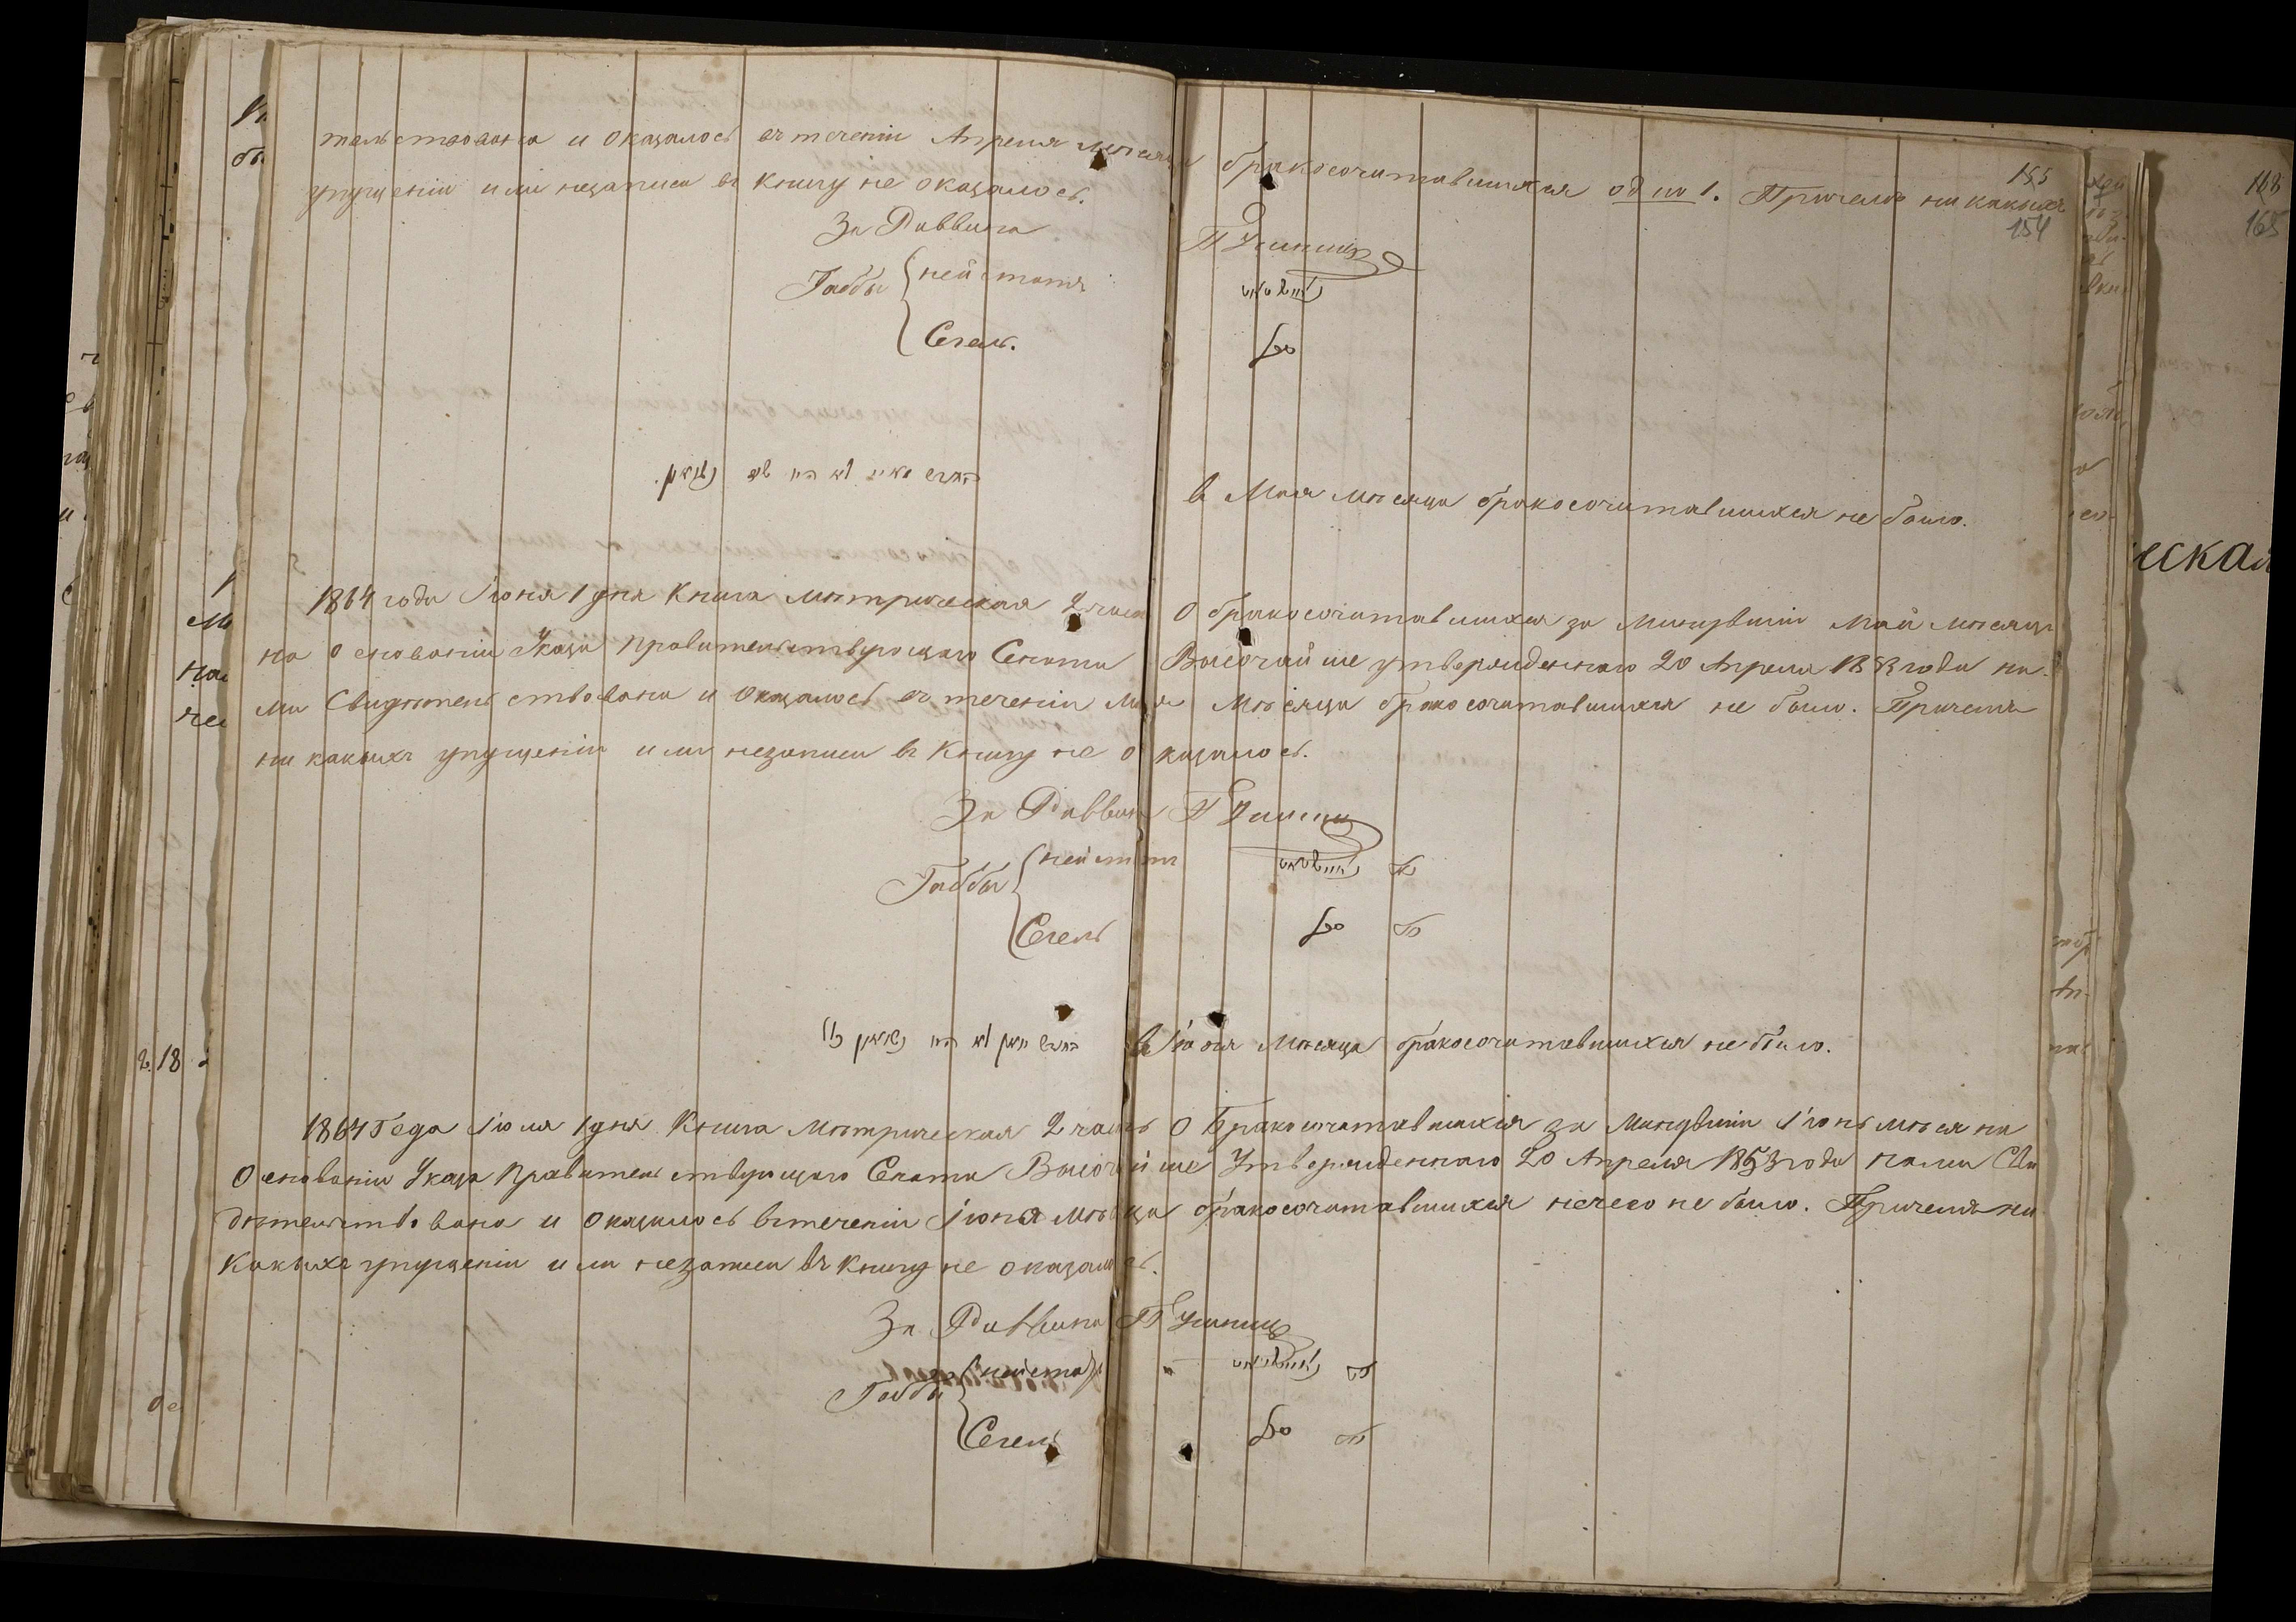 тельствована и оказалось въ теченіи Апреля месяца бракосочитавшихся одно 1. Причемъ ни какихъ
155
154
упущеніи или незаписи въ книгу не оказалось.
За Раввина
Габбы
нейштатъ
Сегаль.
סגל
в Мая месяца бракосочитавшихся не было.
1864 года Іюня 1 дня Книга Метрическая 2 часть О бракосочитавшихся за Минувшіи Май месяцъ
на основаніи Указа правительствующаго Сената Высочайше утвержденнаго 20 Апреля 1853 года на-
ми Свидетельствована и оказалось въ теченіи Мая Месяца бракосочитавшихся не было. Причемъ
ни какихъ упущеніи или незаписи въ книгу не оказалось.
За Раввина
Габбы
нейштатъ
Сегель
סגל
в Іюня Месяца бракосочитавшихся не было.
1864 Года Іюля 1 дня Книга Метрическая 2 часть О Бракосочитавшихся за Минувшіи Іюнь месяц на
Основаніи Указа Правительствующаго Сената Высочайше Утвержденнаго 20 Апреля 1853 года нами Сви
детельствована и оказалось втеченіи Іюня месяца бракосочитавшихся нечего не было. Причемъ ни
какихъ упущеніи или незаписи въ книгу не оказалось.
За Раввина
Габбы
нейштатъ
Сегель
סגל
168
165
еская